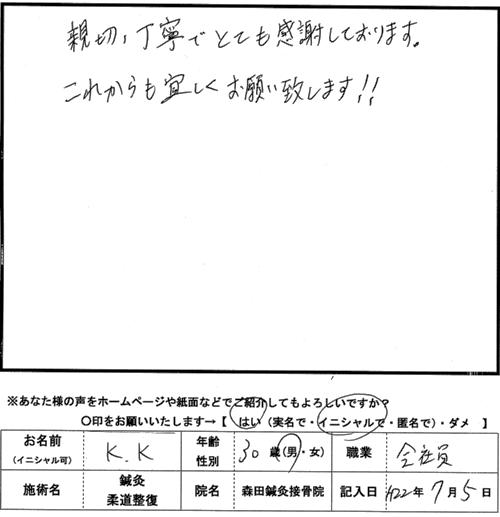 親切、丁寧でとても感謝しております。
これからも宜しくお願い致します!!
※あなた様の声をホームページや紙面などでご紹介してもよろしいですか?
〇印をお願いいたします→【 はい (実名で・イニシャルで・匿名で)・ダメ 】
お名前 (イニシャル可) K.K 年齢 性別 30歳 (男・女) 職業 会社員
施術名 鍼灸 柔道整復 院名 森田鍼灸接骨院 記入日 H22年 7月 5日